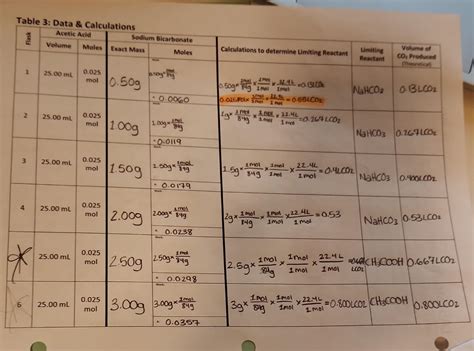 Table 3: Data & Calculations
Flask
Acetic Acid
Sodium Bicarbonate
Calculations to determine Limiting Reactant
Limiting Reactant
Volume of CO₂ Produced (Theoretical)
Volume
Moles
Exact Mass
Moles
1
25.00 mL
0.025 mol
0.50g
0.50g× 1mol/84g
= 0.0060
0.50g× 1mol/84g × 1mol/1mol × 22.4L/1mol =0.13LCO₂
NaHCO₃
0.13LCO₂
2
25.00 mL
0.025 mol
1.00g
1.00g× 1mol/84g
=0.0119
1g× 1mol/84g × 1mol/1mol × 22.4L/1mol =0.267LCO₂
NaHCO₃
0.267LCO₂
3
25.00 mL
0.025 mol
1.50g
1.50g× 1mol/84g
= 0.0179
1.5g× 1mol/84g × 1mol/1mol × 22.4L/1mol =0.4LCO₂
NaHCO₃
0.400LCO₂
4
25.00 mL
0.025 mol
2.00g
2.00g× 1mol/84g
= 0.0238
2g× 1mol/84g × 1mol/1mol × 22.4L/1mol =0.53
NaHCO₃
0.53LCO₂
25.00 mL
0.025 mol
2.50g
2.50g× 1mol/84g
= 0.0298
2.5g× 1mol/84g × 1mol/1mol × 22.4L/1mol
LCO₂
CH₃COOH
0.667LCO₂
6
25.00 mL
0.025 mol
3.00g
3.00g× 1mol/84g
= 0.0357
3g× 1mol/84g × 1mol/1mol × 22.4L/1mol =0.800LCO₂
CH₃COOH
0.800LCO₂